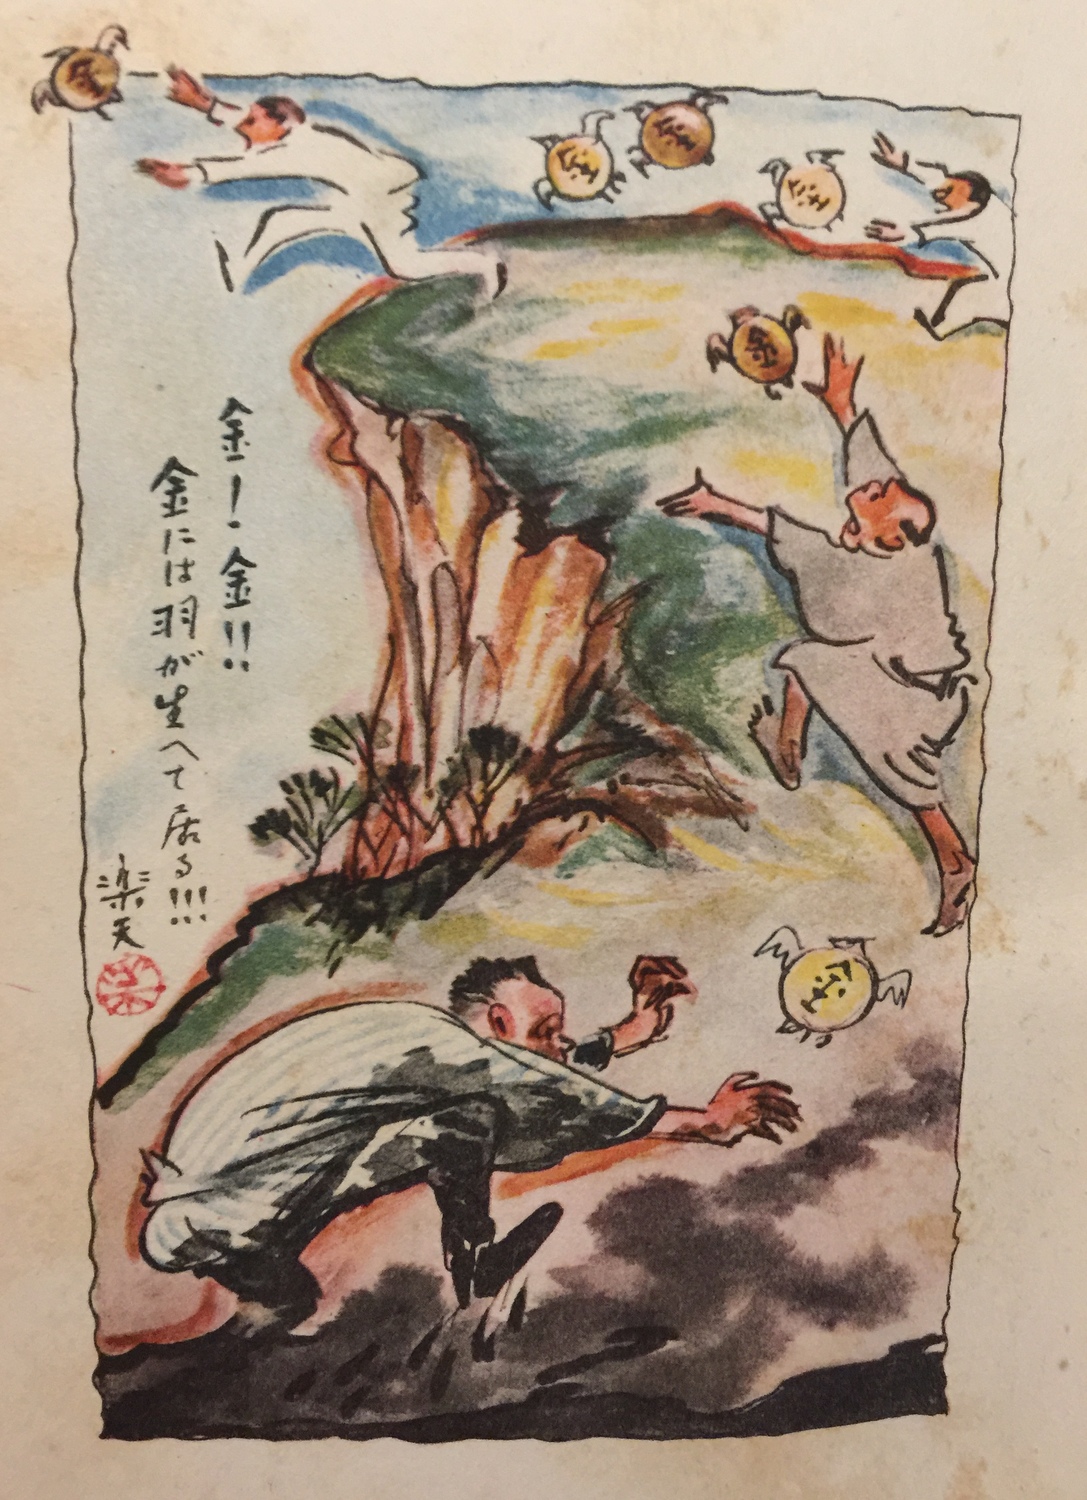 金！金!!
金には羽が生へて居る!!!
楽天
金
金
金
金
金
金